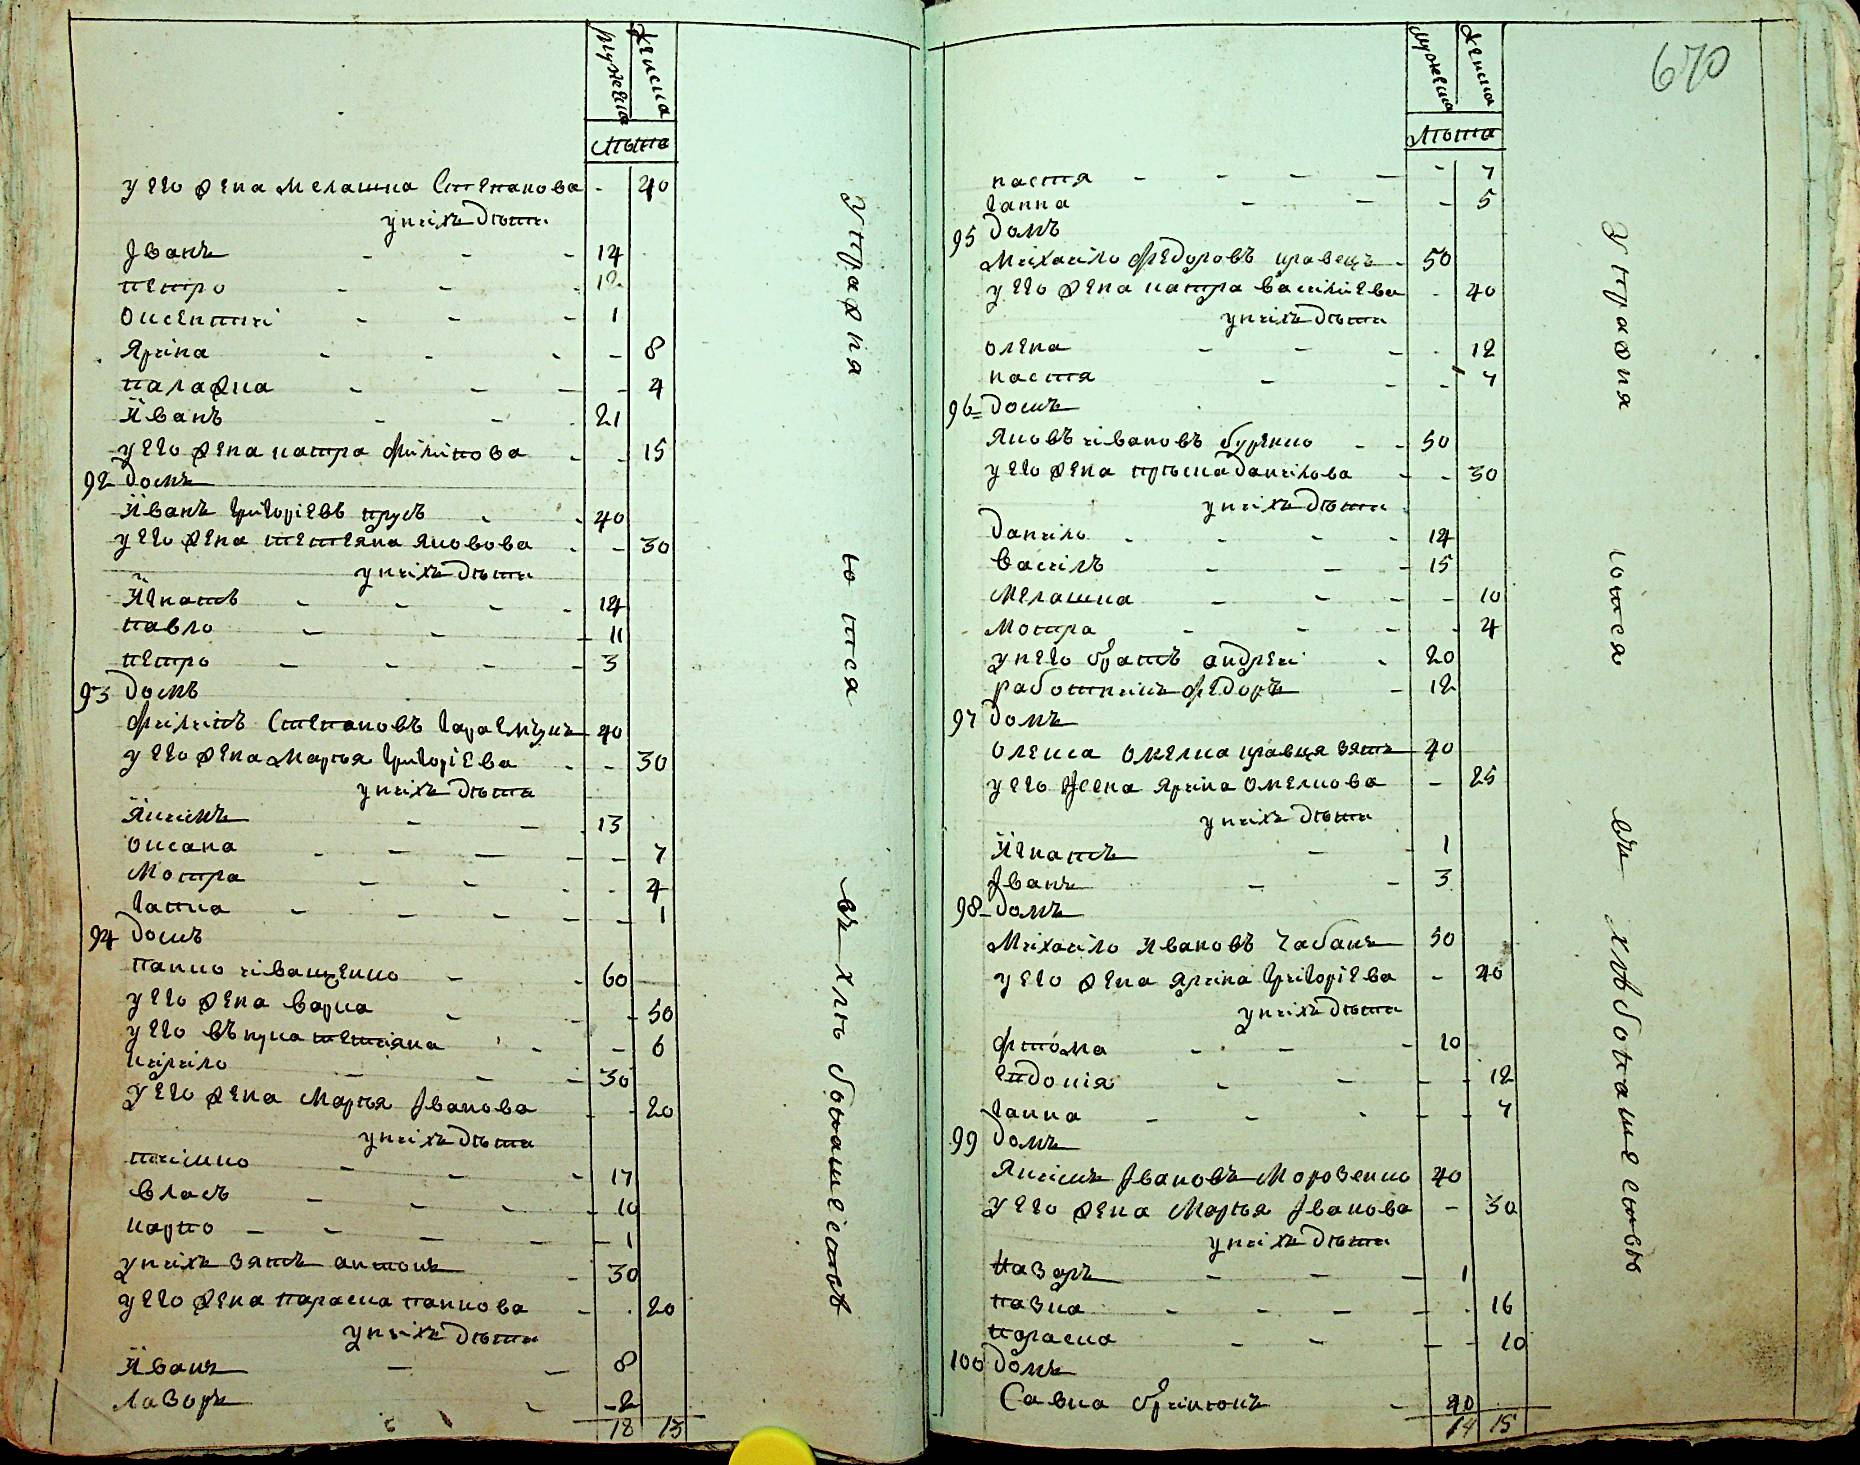 мужеска
женска
лѣта
у его жена мелашка Степанова - 40
у нихъ дѣти
Іванъ - - - 14
петро - - - 12
оксентий - - - 1
Ярина - - - - 8
палажка - - - - 4
Иванъ - - - 21
у его жена катра филипова - - 15
92 домъ
Иванъ григоріевъ прусъ - - 40
у его жена тетяна яковова - - 30
у нихъ дѣти
Игнатъ - - - - 14
павло - - - 11
петро - - - - 3
93 домъ
филипъ Степановъ 40
у его жена Марья григоріева - - 30
у нихъ дѣти
Якимъ - - 13
оксана - - - - - 7
Мотра - - - - 4
гапка - - - - - 1
94 домъ
панко иващенко - - 60
у его жена варка - - - 50
у его внука тетияна - - - 6
кирило - - - 30
у его жена Марья Іванова - - 20
у нихъ дѣти
тимко - - - 17
власъ - - - - 10
карпо - - - - - 1
у нихъ зять антонъ - 30
у его жена параска панкова - - 20
у нихъ дѣти
Иванъ - - 8
Лазоръ - - 2
18 13
Упражня
ются
въ хлѣбопашествѣ
670
мужеска
женска
лѣта
настя - - - - - 7
ганна - - - 5
95 домъ
Михайло федоровъ кравецъ - 50
у его жена катра василіева - 40
у нихъ дѣти
олена - - - - 12
настя - - - 7
96 домъ
Яковъ ивановъ буренко - - 50
у его жена данилова - - 30
у нихъ дѣти
данило - - - - 14
василь - - - 15
Мелашка - - - - 10
Мотра - - - - 4
у него братъ андрей - 20
работникъ федоръ - 12
97 домъ
олекса омелка кравця зять 40
у его жена ярина омелкова - 25
у нихъ дѣти
Игнатъ - - 1
Іванъ - - 3
98 домъ
Михайло Ивановъ чабанъ 50
у его жена ярина григоріева - 40
у нихъ дѣти
- - - 10
евдокія - - - - 12
ганна - - - - - 7
99 домъ
Якимъ Івановъ Морозенко 40
у его жена Марья Іванова - 30
у нихъ дѣти
назаръ - - - 1
пазка - - - - - 16
параска - - - - 10
100 домъ
Савка - 40
14 15
Упражня
ются
въ
хлѣбопашествѣ